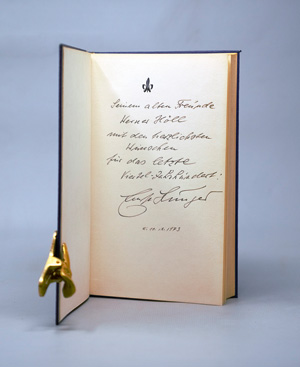 Seinem alten Freunde
Werner Höll
mit den herzlichsten
Wünschen
für das letzte
Viertel-Jahrhundert.
Ernst Jünger